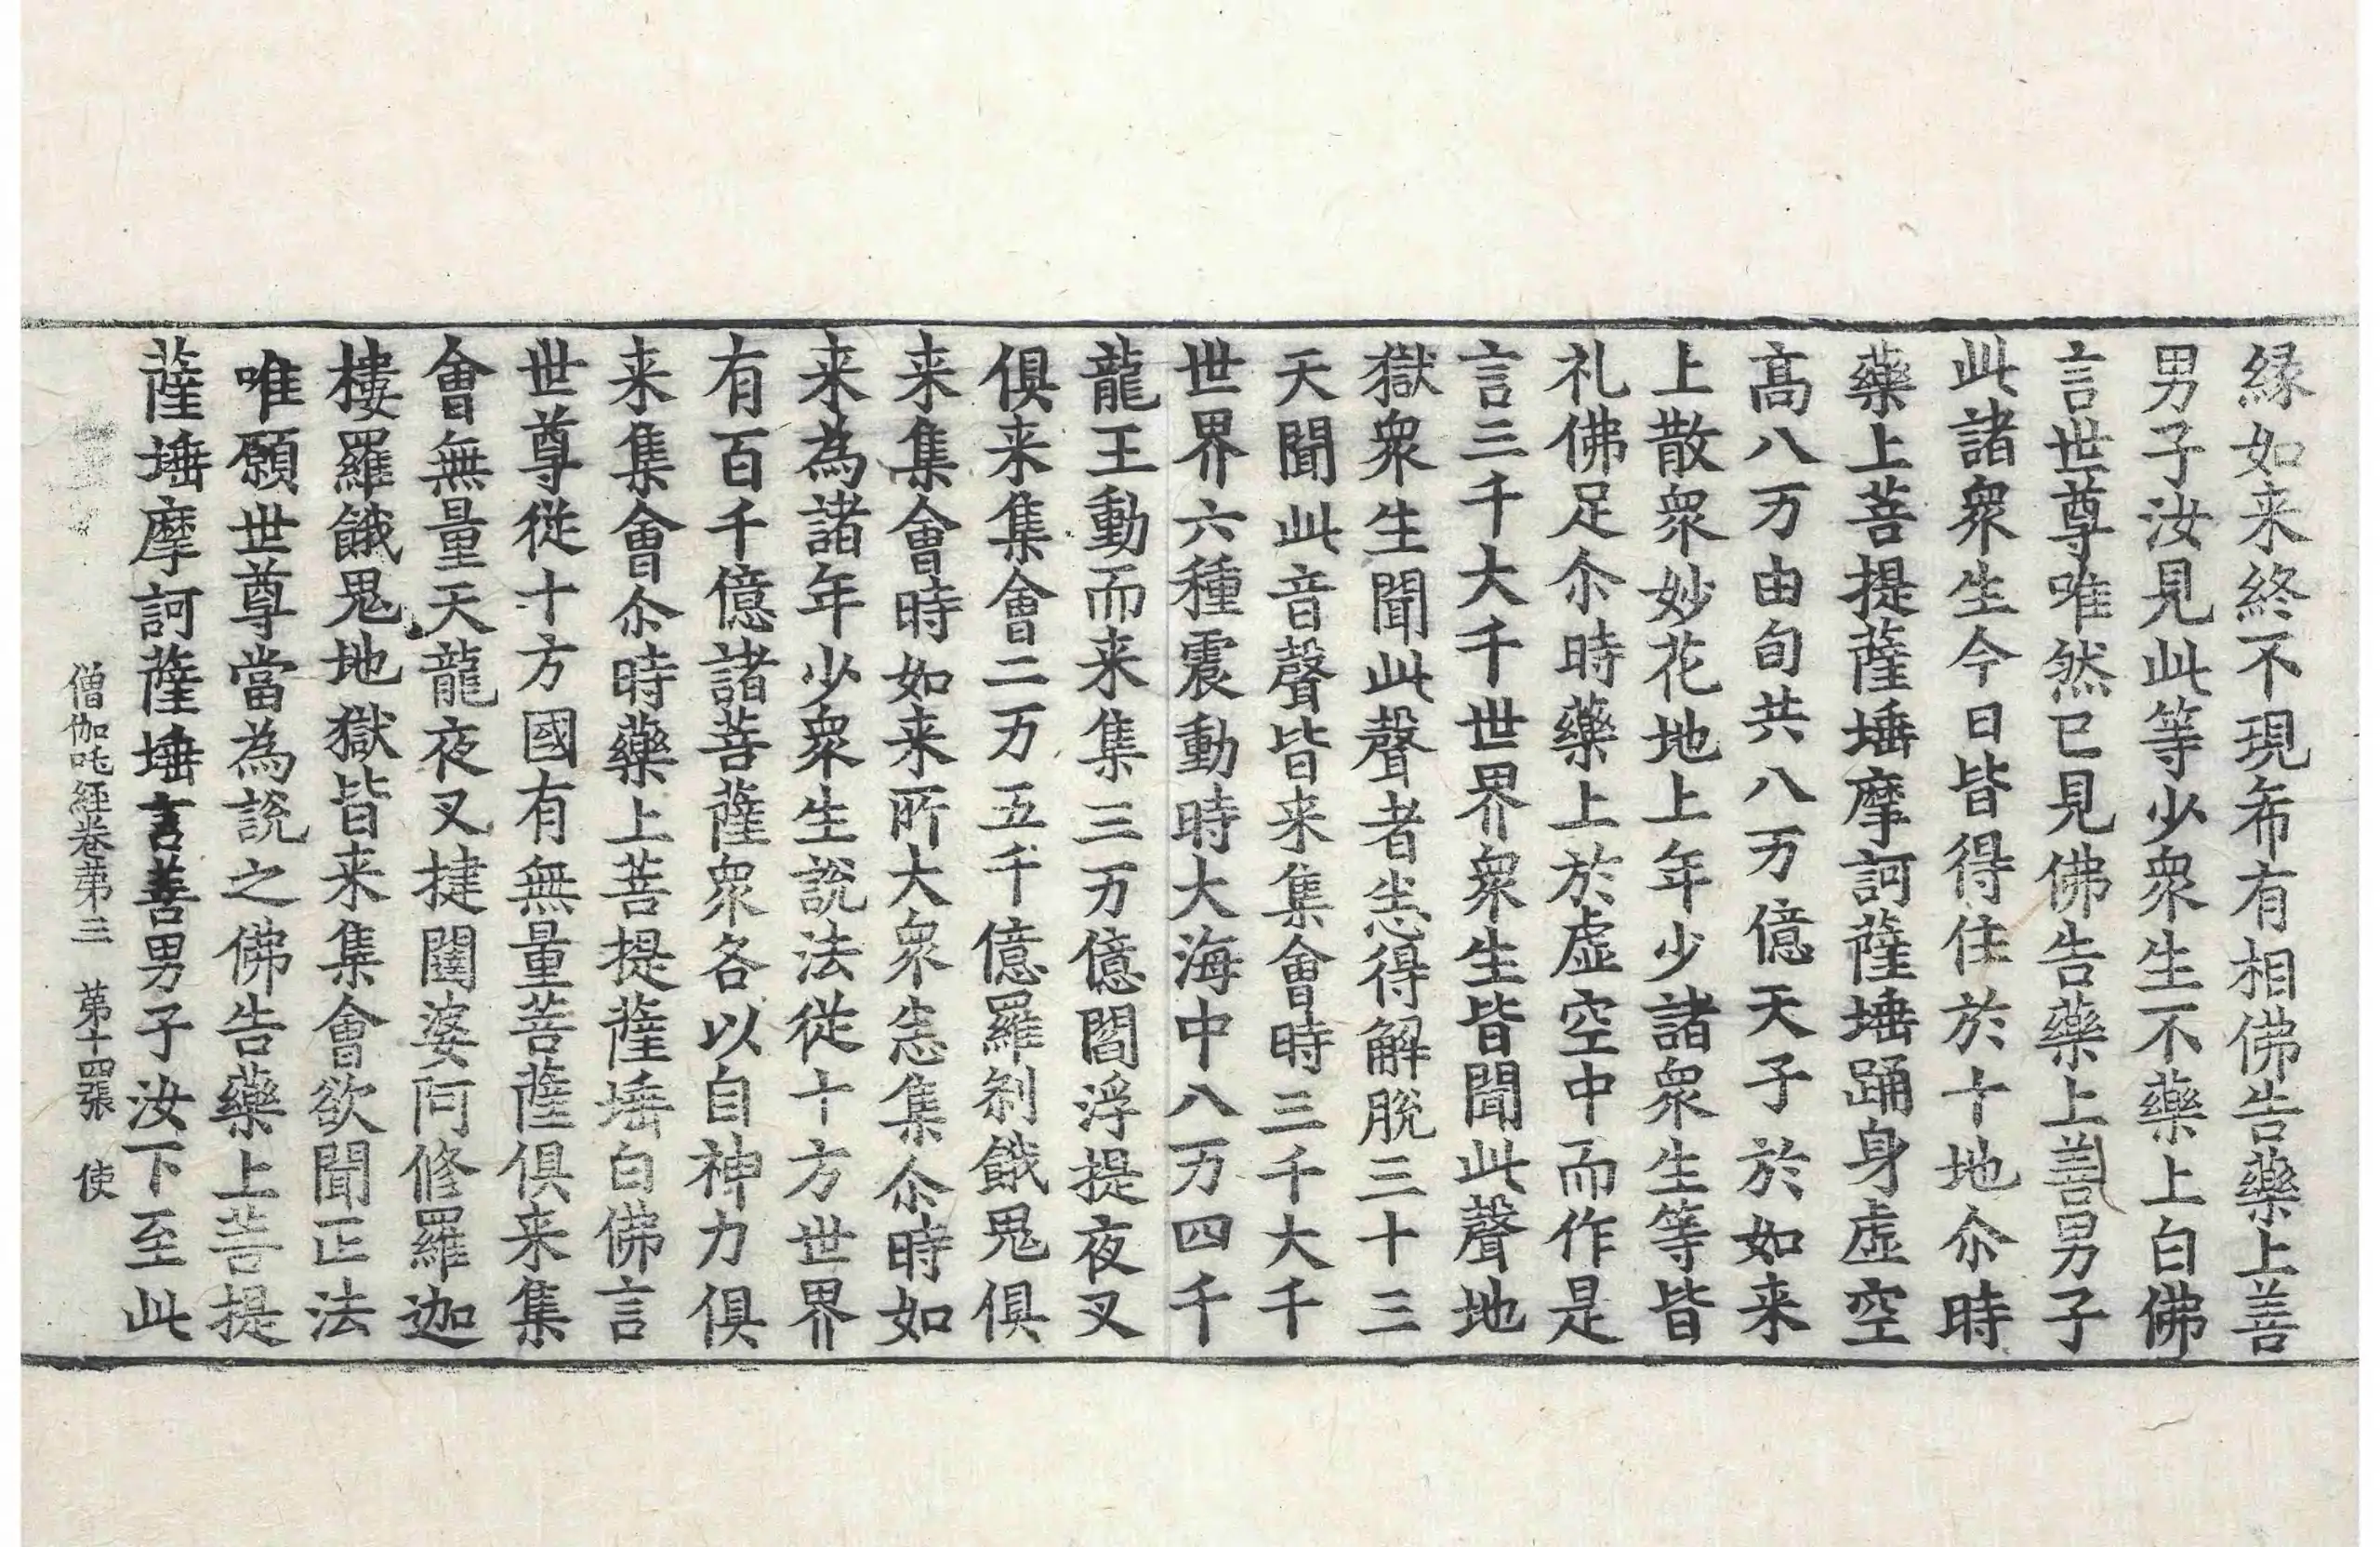 縁如来終不現希有相佛告藥上善
男子汝見此等少衆生不藥上白佛
言世尊唯然已見佛告藥上善男子
此諸衆生今日皆得住於十地尒時
藥上菩提薩埵摩訶薩埵踊身虛空
高八万由旬共八万億天子於如来
上散衆妙花地上年少諸衆生等皆
礼佛足尒時藥上於虛空中而作是
言三千大千世界衆生皆聞此聲地
獄衆生聞此聲者悉得解脫三十三
天聞此音聲皆来集會時三千大千
世界六種震動時大海中八万四千
龍王動而来集三万億閻浮提夜叉
俱来集會二万五千億羅刹餓鬼俱
来集會時如来所大衆悉集尒時如
来為諸年少衆生說法從十方世界
有百千億諸菩薩衆各以自神力俱
来集會尒時藥上菩提薩埵白佛言
世尊從十方國有無量菩薩俱来集
會無量天龍夜叉揵闥婆阿修羅迦
樓羅餓鬼地獄皆来集會欲聞正法
唯願世尊當為說之佛告藥上菩提
薩埵摩訶薩埵言善男子汝下至此
僧伽吒経卷苐三 苐十四張 使